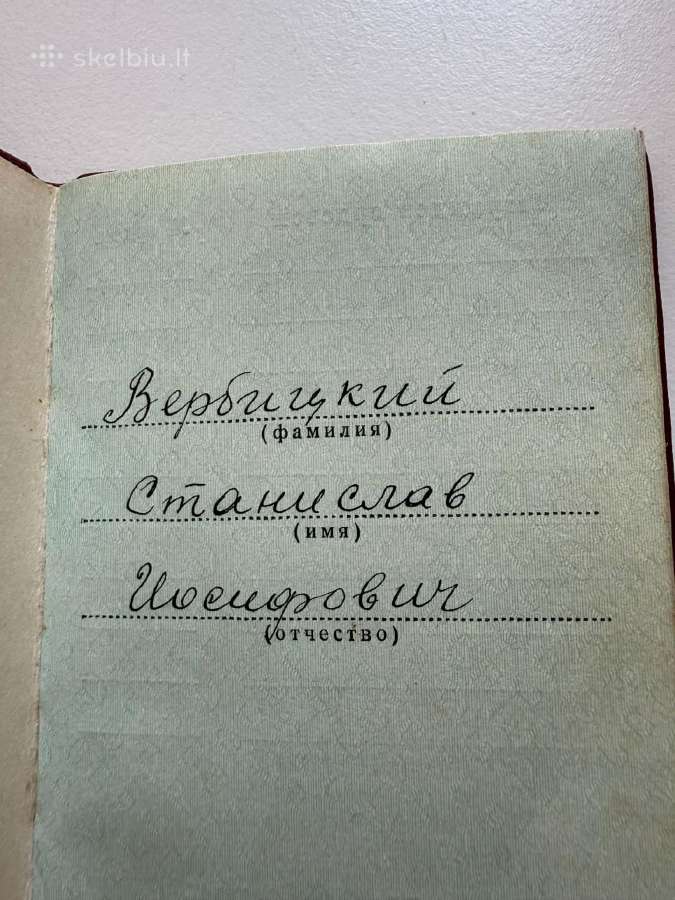 skelbiu.lt
Вербицкий
(фамилия)
Станислав
(имя)
Иосифович
(отчество)